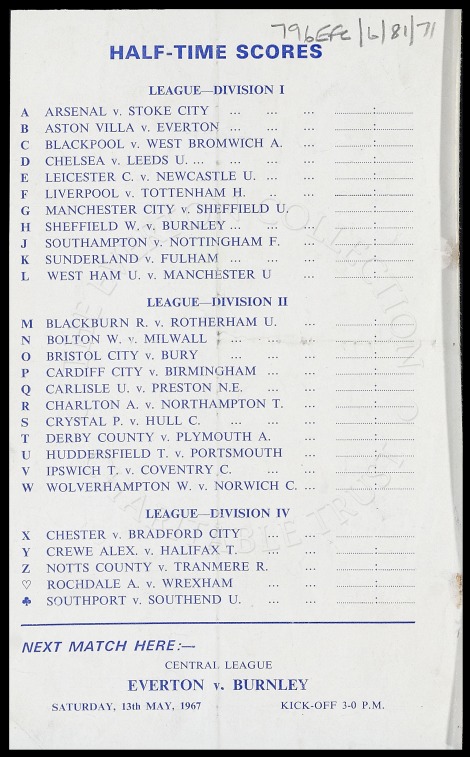 796EFC/6/81/71
HALF-TIME SCORES
LEAGUE—DIVISION I
A ARSENAL v. STOKE CITY ... ... ... :
B ASTON VILLA v. EVERTON ... ... ... :
C BLACKPOOL v. WEST BROMWICH A. ... :
D CHELSEA v. LEEDS U. ... ... ... :
E LEICESTER C. v. NEWCASTLE U. ... ... :
F LIVERPOOL v. TOTTENHAM H. .. ... :
G MANCHESTER CITY v. SHEFFIELD U. :
H SHEFFIELD W. v. BURNLEY ... ... ... :
J SOUTHAMPTON v. NOTTINGHAM F. ... :
K SUNDERLAND v. FULHAM ... ... ... :
L WEST HAM U. v. MANCHESTER U ... :
LEAGUE—DIVISION II
M BLACKBURN R. v. ROTHERHAM U. ... :
N BOLTON W. v. MILWALL ... ... ... :
O BRISTOL CITY v. BURY ... ... ... :
P CARDIFF CITY v. BIRMINGHAM ... ... :
Q CARLISLE U. v. PRESTON N.E. ... ... :
R CHARLTON A. v. NORTHAMPTON T. ... :
S CRYSTAL P. v. HULL C. ... ... ... :
T DERBY COUNTY v. PLYMOUTH A. ... :
U HUDDERSFIELD T. v. PORTSMOUTH ... :
V IPSWICH T. v. COVENTRY C. ... ... :
W WOLVERHAMPTON W. v. NORWICH C. ... :
LEAGUE—DIVISION IV
X CHESTER v. BRADFORD CITY ... ... :
Y CREWE ALEX. v. HALIFAX T. ... ... :
Z NOTTS COUNTY v. TRANMERE R. ... :
♡ ROCHDALE A. v. WREXHAM ... ... :
♣ SOUTHPORT v. SOUTHEND U. ... ... :
NEXT MATCH HERE:—
CENTRAL LEAGUE
EVERTON v. BURNLEY
SATURDAY, 13th MAY, 1967 KICK-OFF 3-0 P.M.